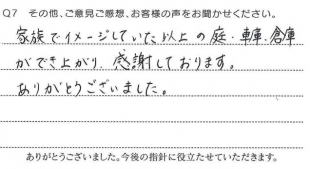 Q7 その他、ご意見ご感想、お客様の声をお聞かせください。
家族でイメージしていた以上の庭・車庫・倉庫
ができ上がり、感謝しております。
ありがとうございました。
ありがとうございました。今後の指針に役立たせていただきます。